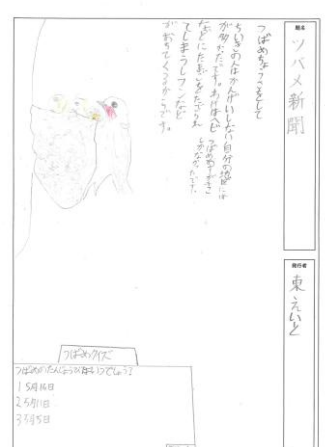 題名
ツバメ新聞
発行者
東えいと
つばめちょうさをして
ちいきの人はかんけいしない自分の地区には
が多かったです。わけはヘビ
などにたまごをたべられ
てしまうしフンなど
がおちてくるからです。
つばめクイズ
つばめのたんじょう日はいつでしょう?
1 5月16日
2 5月11日
3 5月5日